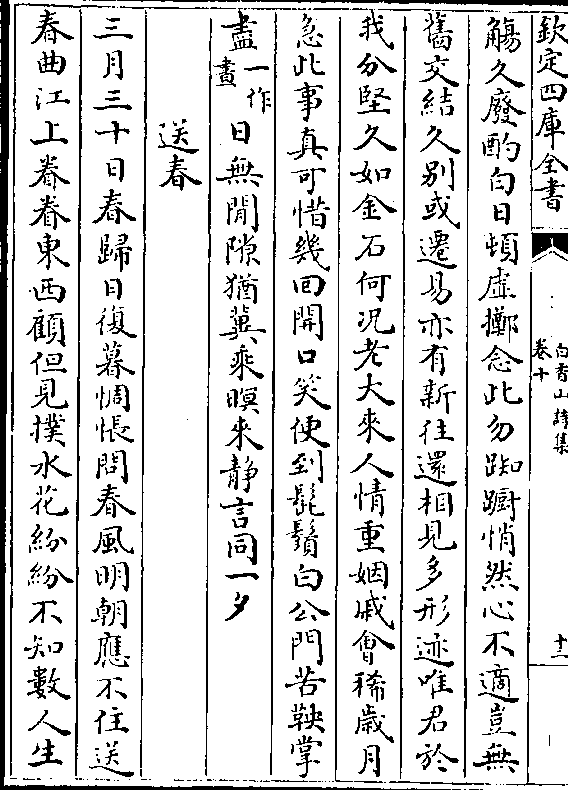 欽定四庫全書
白香山詩集
卷十
十二
觴久廢酌白日頓虛擲念此勿踟躕悄然心不適豈無
舊交結久别或遷易亦有新往還相見多形迹唯君於
我分堅久如金石何况老大來人情重姻戚㑹稀嵗月
急此事真可惜幾回開口笑便到髭鬚白公門苦鞅掌
盡一作晝日無閒隙猶冀乘暝來静言同一夕
送春
三月三十日春歸日復暮惆悵問春風明朝應不住送
春曲江上眷眷東西顧但見撲水花紛紛不知數人生